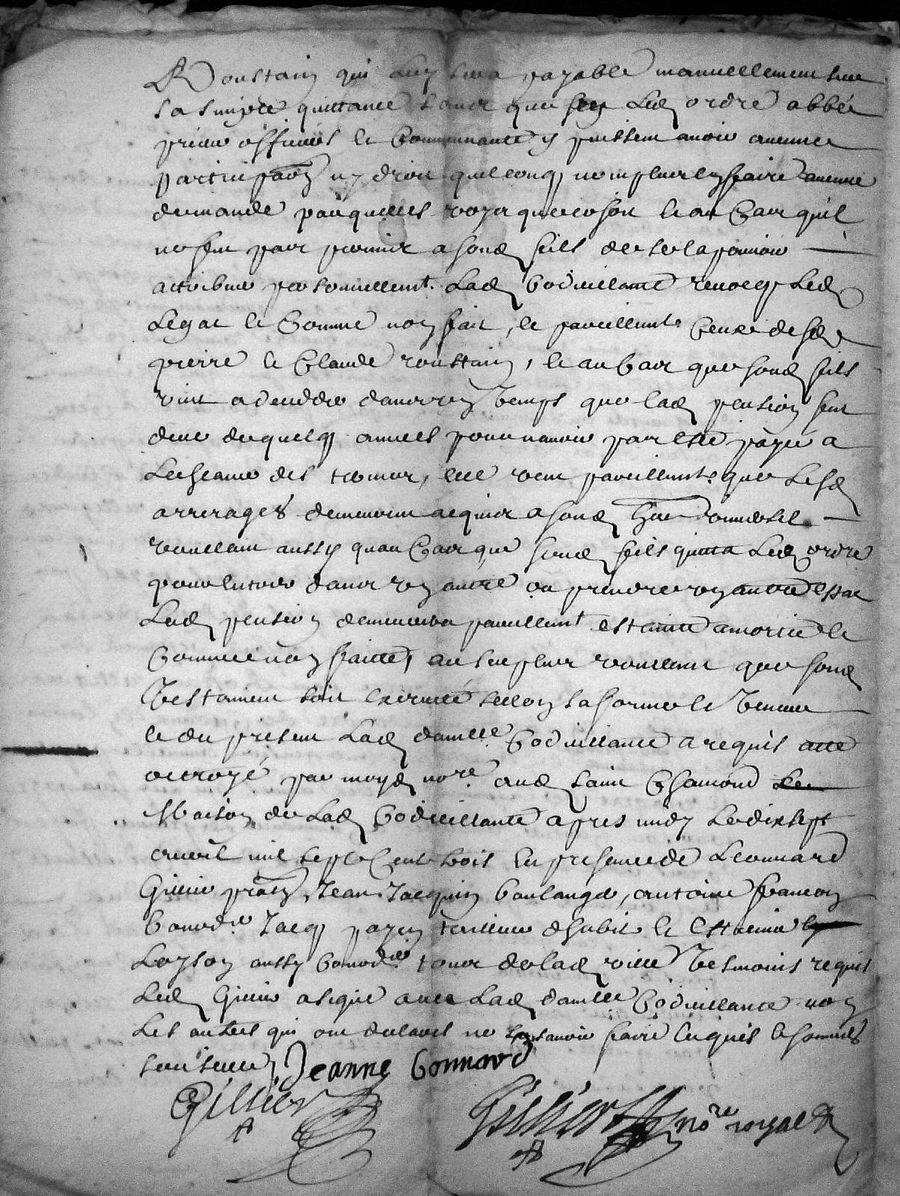 Roustain qui luy sera payable manuellement sur
sa simple quittance sans que led ordre abbé
prieur officiers et Communauté y puissent avoir aucune
participaon ny droit quelconq ny en faire aucune
demande pour quelle voye que ce soit et au Cas qu'il
ne fut pas permis a sond fils de
attribue personnellemt. Lad Codicillante revoq led
Legat et Comme non fait, et pareillemt Ceux desd
pierre et Claude roustain, et au Cas que sond fils
vint a deceder dans un temps que lad pension fut
deue de quelq années pour n'avoir par esté payée a
des termes, elle veut pareillemt que lesd
arrerages demeurent acquis a sond
voullant aussy qu'au Cas que sond fils quitta led ordre
pour entrer dans un autre ou prendre un autre estat
Lad pension demeurera pareillemt estainte amortie et
Comme non faitte, au surplus voullant que sond
Testament soit executé selon sa forme et teneur
et du present Lad damlle Codicillante a requis acte
octroyé par moyd nore aud saint Chamond
Maison de Lad Codicillante apres midy Le dix sept
avril mil sept Cent trois En presence de Leonnard
Gillier praon, Jean Jacquin boulanger, antoine francon
Jacq payen tailleur d'habit et Estienne
Loyson aussy tous de lad ville Tesmoins requis
Led Gillier a signé avec Lad damlle Codicillante non
Les autres qui ont declaré ne sçavoir faire enquis et sommés
Jeanne Bonnard
Gillier
Gillier nore royal